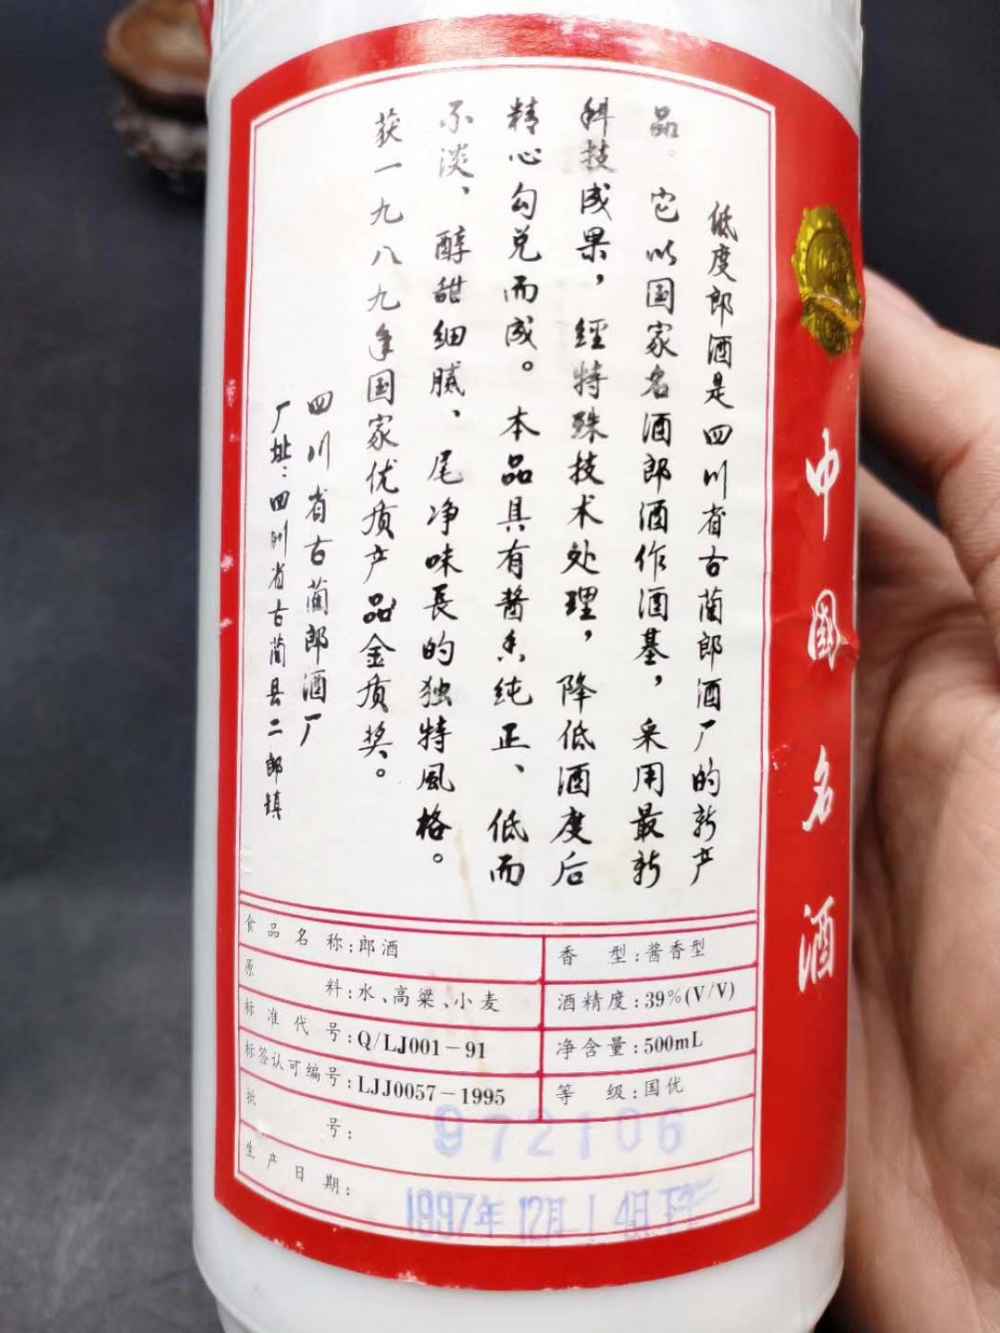 低度郎酒是四川省古蔺郎酒厂的新产
品。它以国家名酒郎酒作酒基，采用最新
科技成果，經特殊技术处理，降低酒度后
精心勾兑而成。本品具有酱香纯正、低而
不淡、醇甜细腻、尾净味長的独特風格。
获一九八九年国家优质产品金质奖。
四川省古蔺郎酒厂
厂址：四川省古蔺县二郎镇
中國名酒
食品名称：郎酒
香型：酱香型
原料：水、高粱、小麦
酒精度：39%(V/V)
标准代号：Q/LJ001-91
净含量：500mL
标签认可编号：LJJ0057-1995
等级：国优
批号：972106
生产日期：1997年12月14日